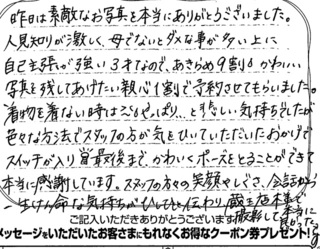 昨日は素敵なお写真を本当にありがとうございました。
人見知りが激しく、母でないとダメな事が多い上に
自己主張が強い3才なので、あきらめ9割もかわいい
写真を残してあげたい親心1割で予約させてもらいました。
着物を着ない時はやっぱり…と悲しい気持ちでしたが
色々な方法でスタッフの方が気をひいていただいたおかげで
スイッチが入り最後まで、かわいくポーズをとることができて
本当に感謝しています。スタッフの方々の笑顔やしぐさ、会話から
一生けん命な気持ちがひしひしと伝わり蔵王店本車で
撮影して本当に
良かったです
ご記入いただきありがとうございます
メッセージをいただいたお客さまにもれなくお得なクーポン券プレゼント!